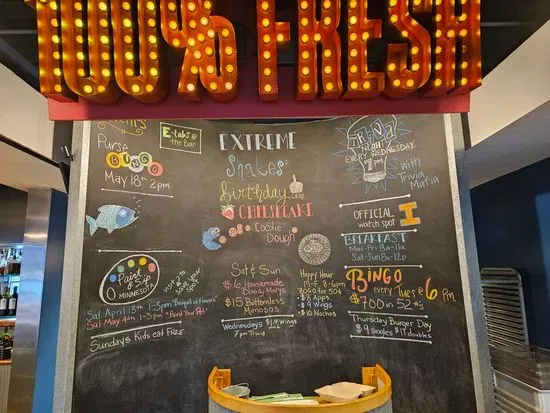 100% FRESH
Events
Purse
BINGO
May 18th 2pm
E-tabs @
the Bar
Paint &
Sip
MINNESOTA
Sat April 13th 1-3pm "Bouquet of Flowers"
Sat May 4th 1-3pm "Paint Your Pet"
Sundays Kids eat FREE
EXTREME
Shakes
birthday
CHEESECAKE
Cookie
Dough
Sat & Sun
$6 Housemade
Bloody Marys
$15 Bottomless
Mimosas
Wednesdays Wings
7pm Trivia
Happy Hour
M-F 3-6pm
2 for
$8 Apps
$9 Wings
$10 Nachos
TRIVIA
NIGHT
EVERY WEDNESDAY
7pm
With
Trivia
Mafia
OFFICIAL
watch spot I
BREAKFAST
Mon-Fri 8a-11a
Sat-Sun 8a-12p
BINGO every Tues @ 6pm
$700 in 52 #s
Thursday Burger Day
$9 singles $12 doubles